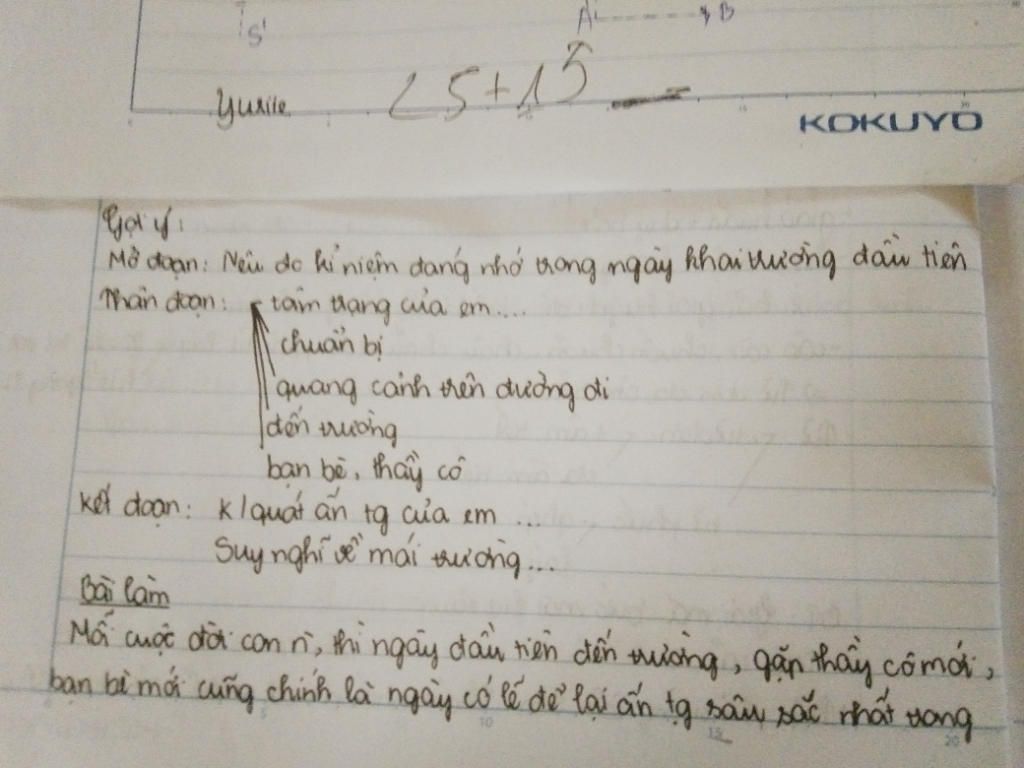 S'
A B
Yuriie 25+15
KOKUYO
Gợi ý:
Mở đoạn: Nêu do kỉ niệm đáng nhớ trong ngày khai trường đầu tiên
Thân đoạn: - tâm trạng của em....
chuẩn bị
quang cảnh trên đường đi
đến trường
bạn bè, thầy cô
Kết đoạn: K/quát ấn tg của em ...
Suy nghĩ về mái trường...
Bài làm
Mỗi cuộc đời con n', thì ngày đầu tiên đến trường, gặp thầy cô mới,
bạn bè mới cũng chính là ngày có lẽ để lại ấn tg sâu sắc nhất trong
5 10 15 20